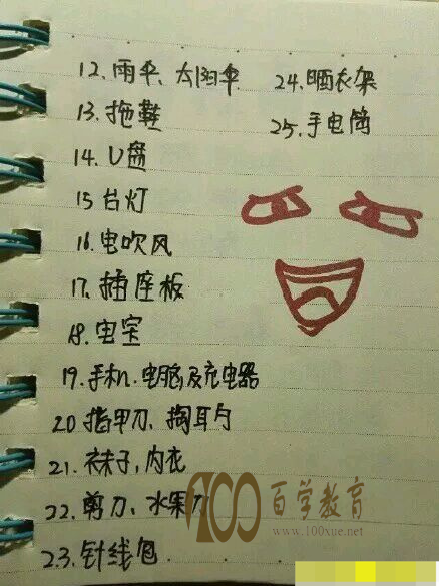 12、雨伞、太阳伞
13、拖鞋
14、U盘
15 台灯
16、电吹风
17、插座板
18、电宝
19、手机、电脑及充电器
20 指甲刀、掏耳勺
21、袜子,内衣
22、剪刀、水果刀
23、针线包
24、晒衣架
25、手电筒
100 百学教育
www.100xue.net